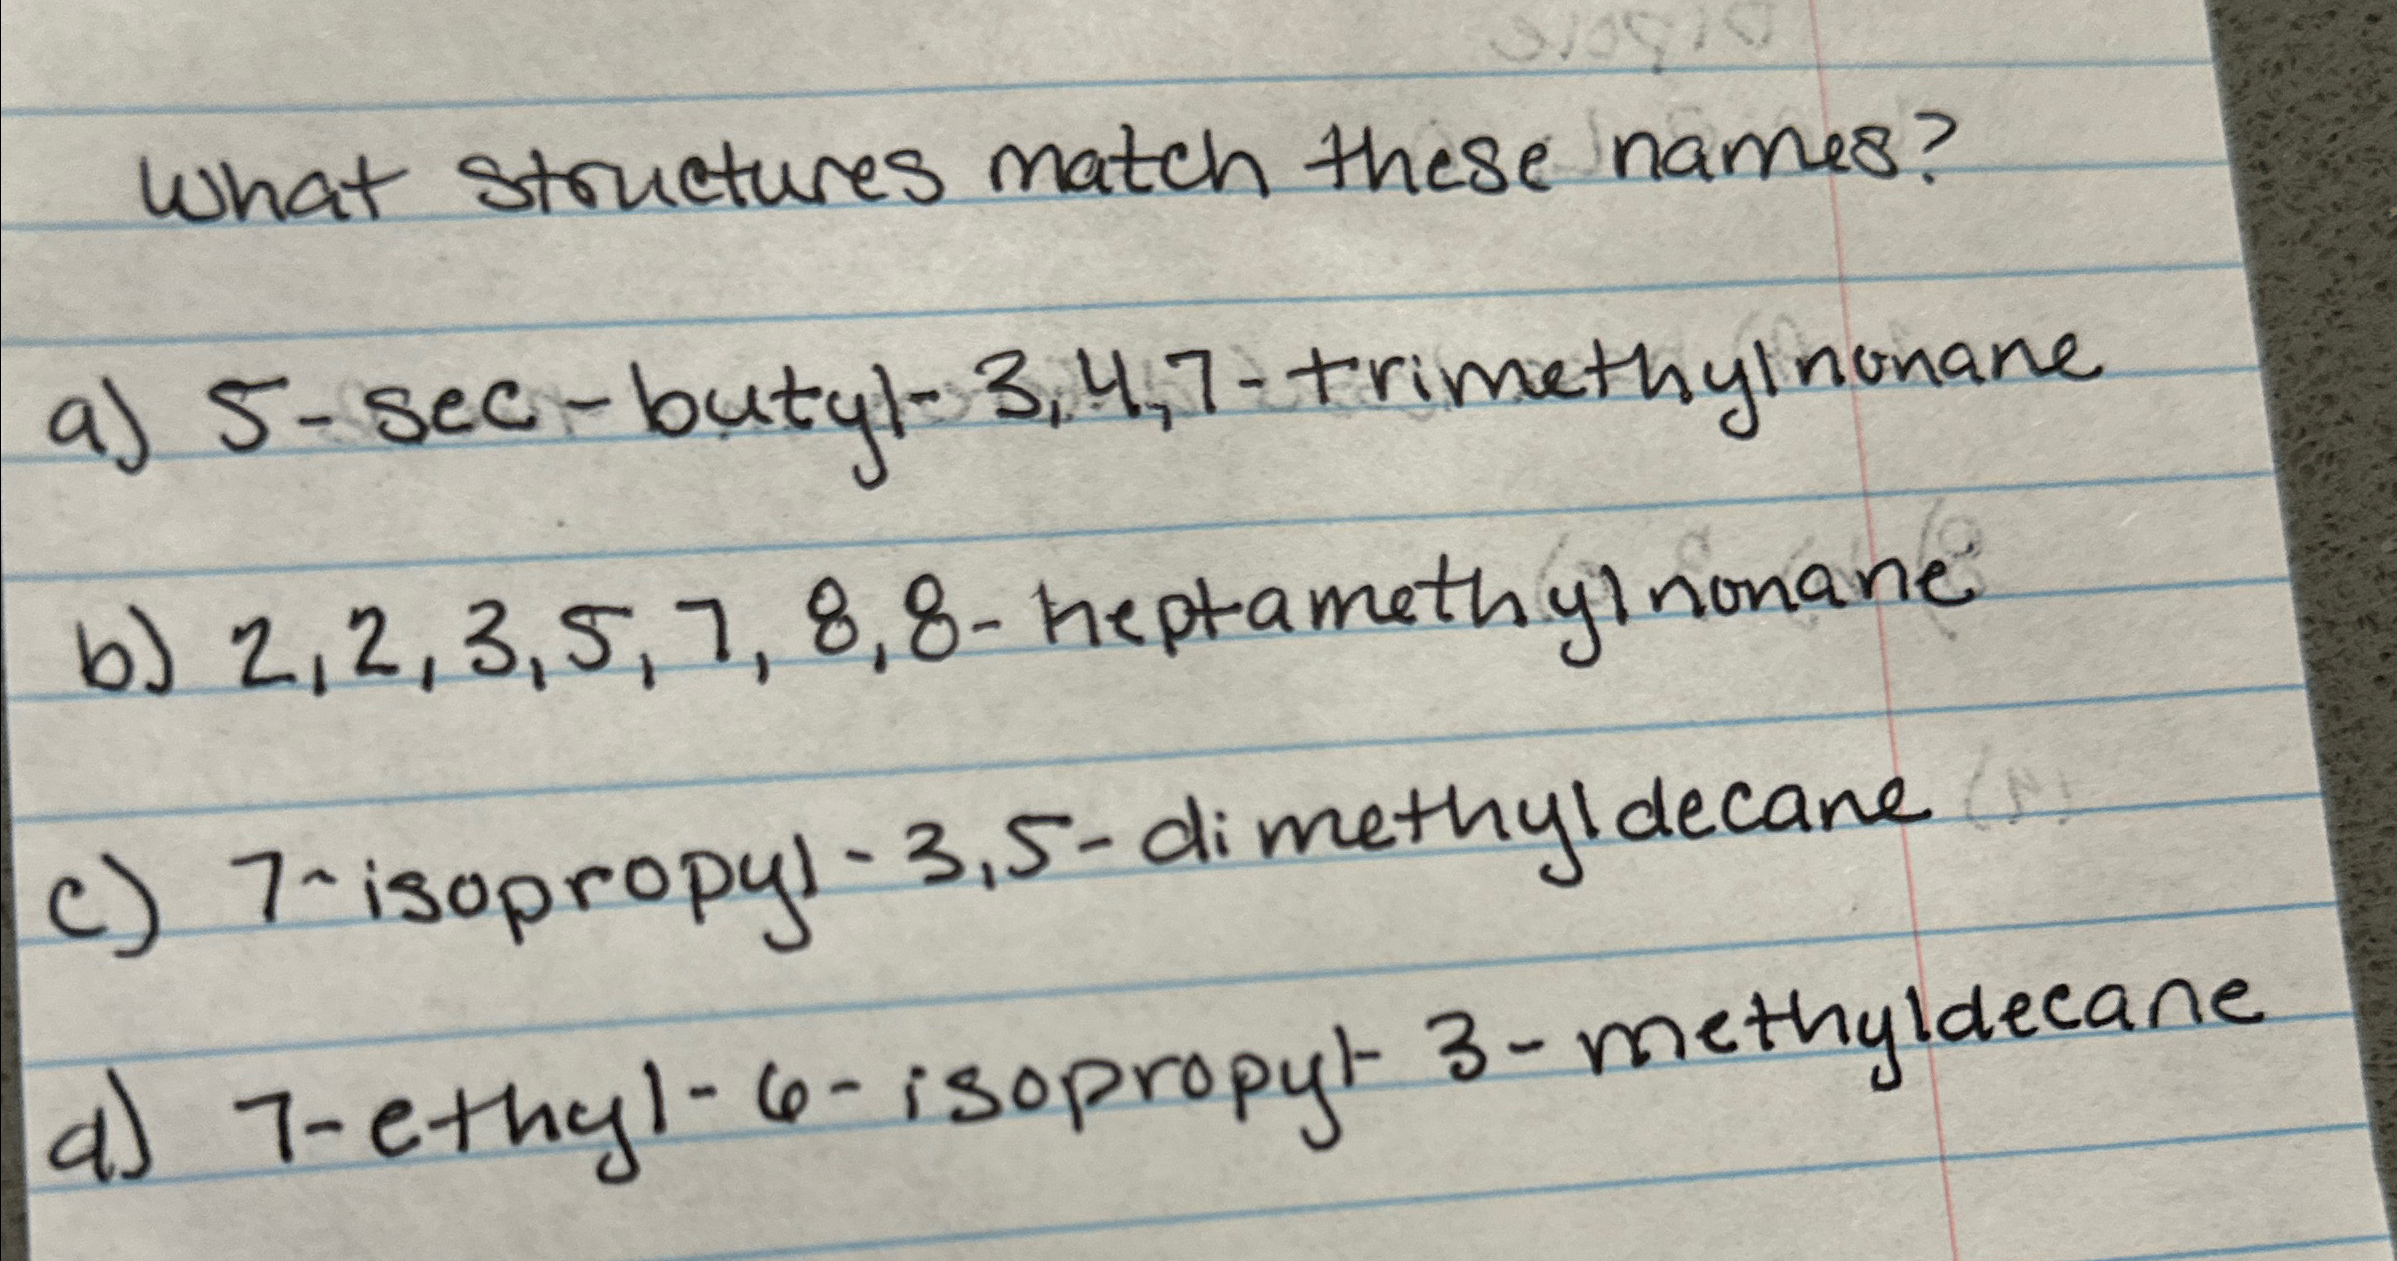 What structures match these names?
a) 5-sec-butyl-3,4,7-trimethylnonane
b) 2,2,3,5,7,8,8-heptamethylnonane
c) 7-isopropyl-3,5-dimethyldecane
d) 7-ethyl-6-isopropyl-3-methyldecane